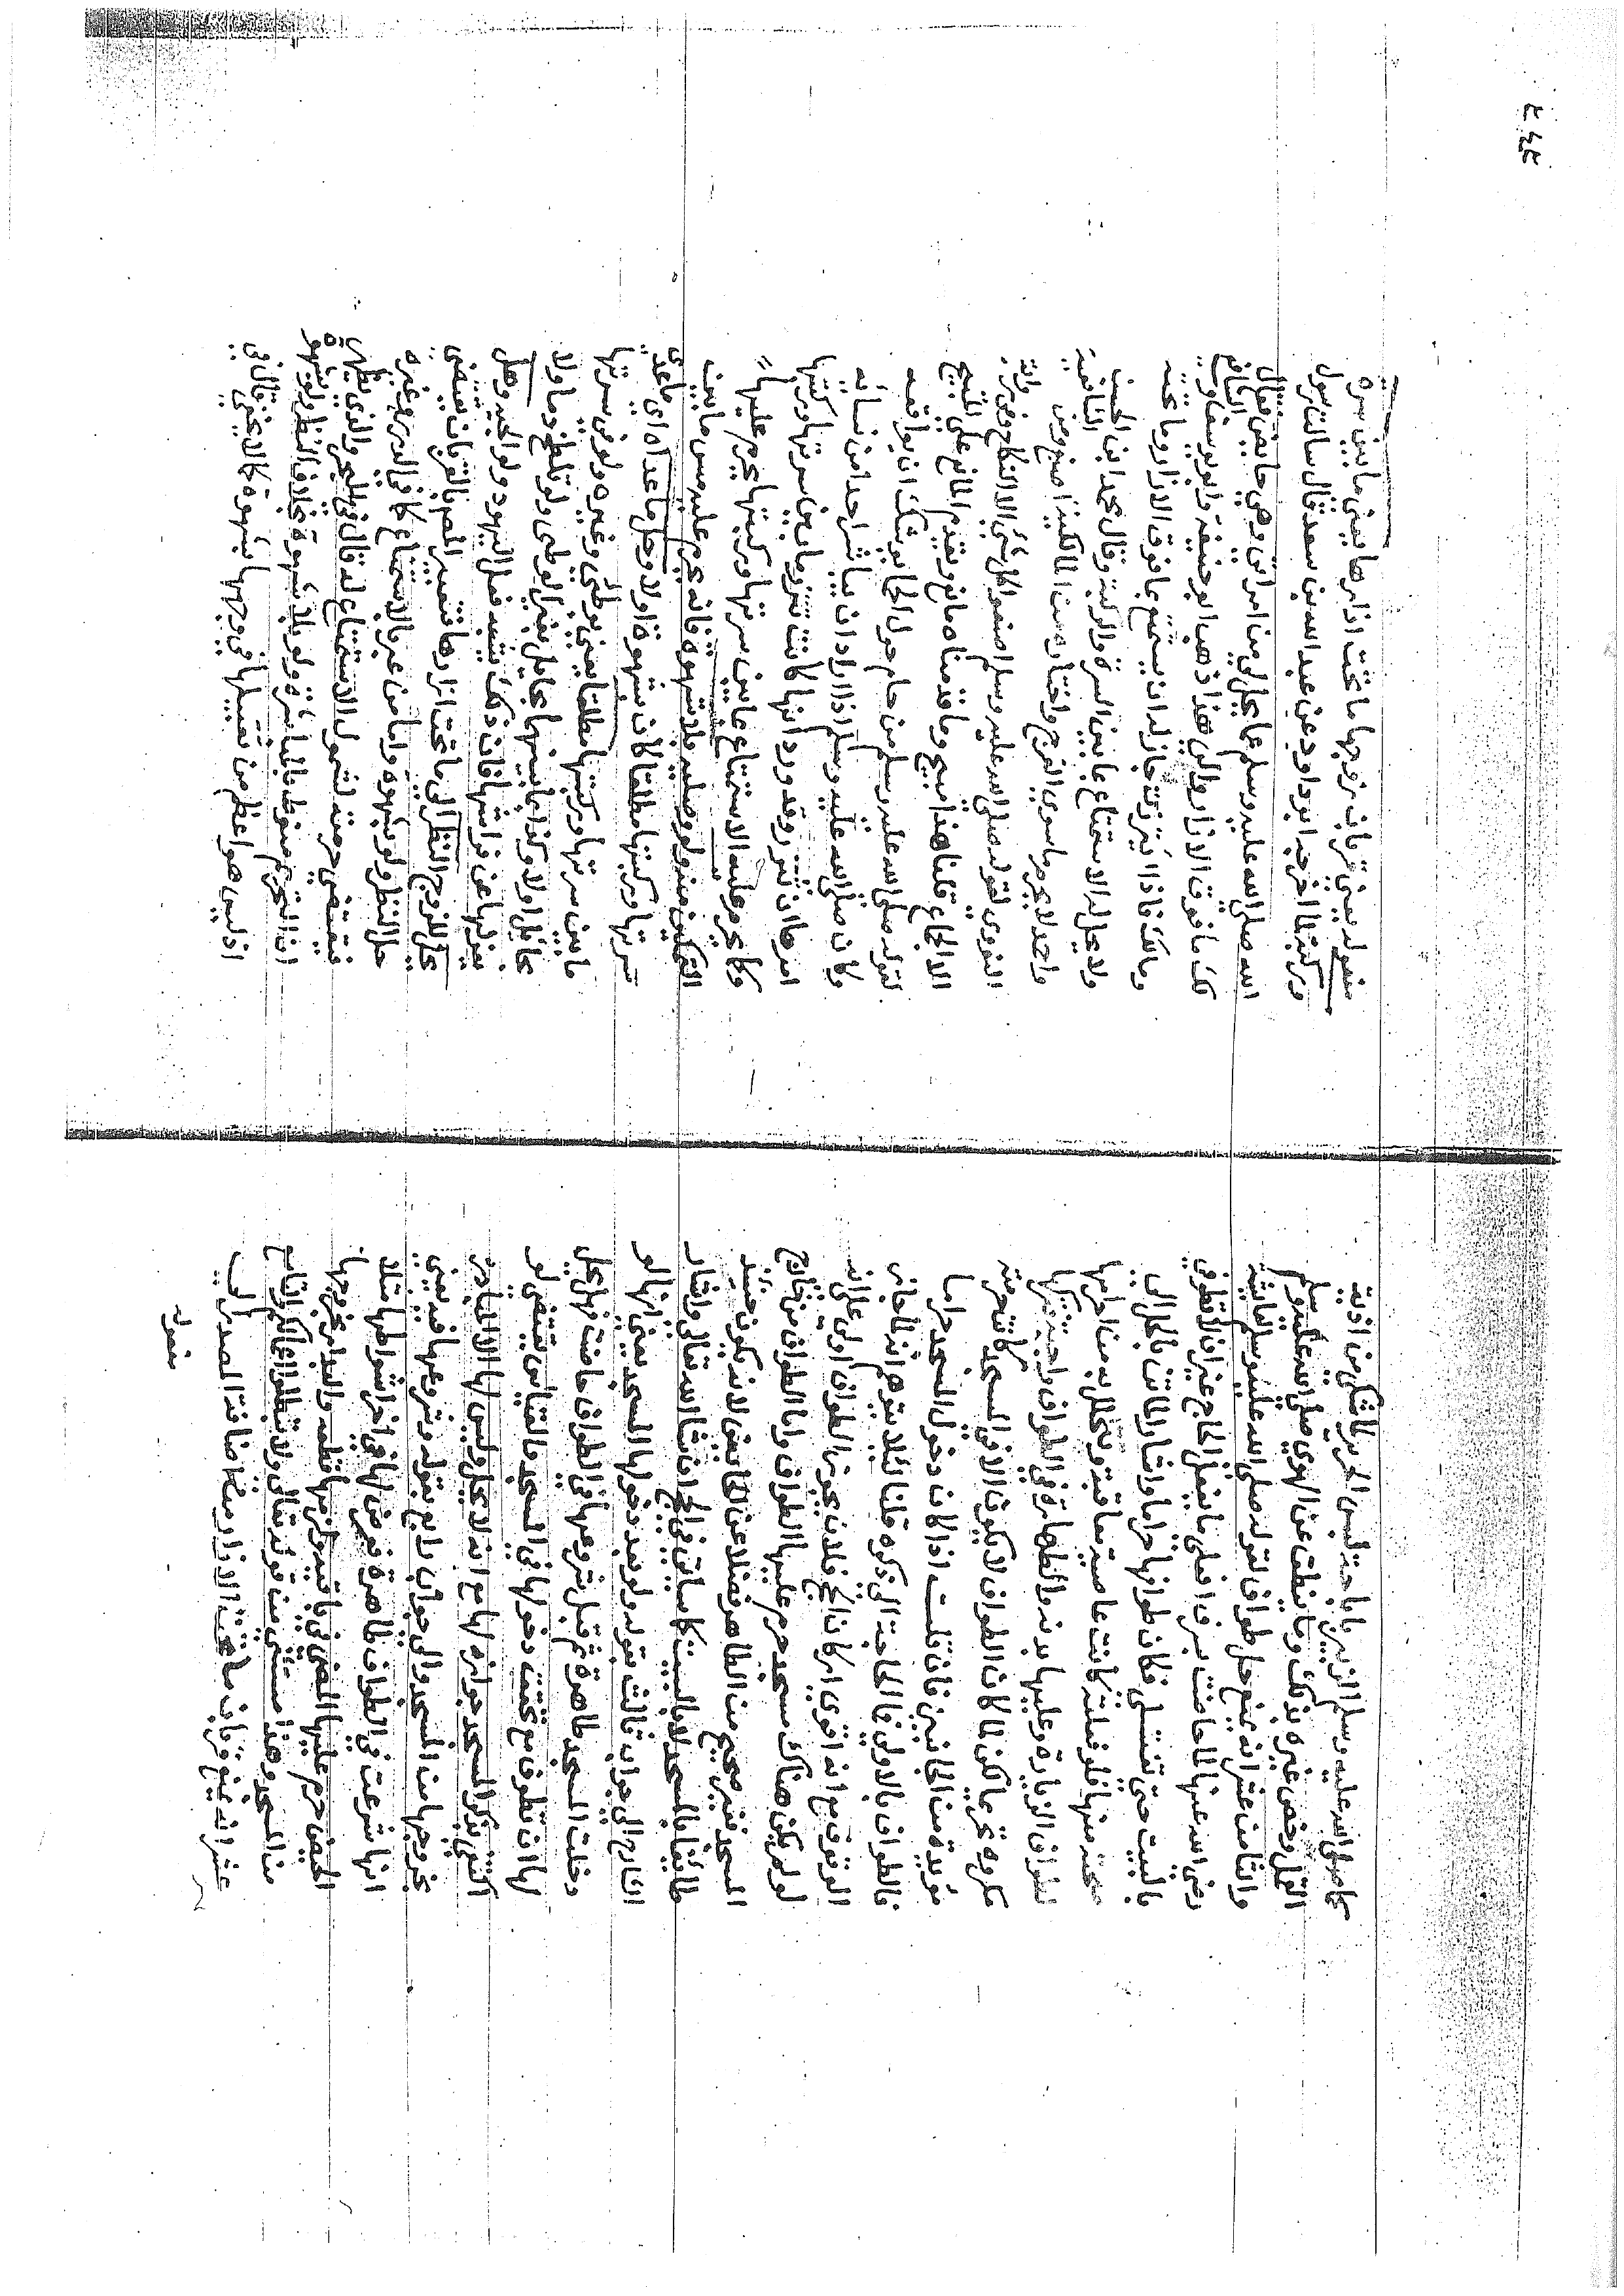 كما صلى الله عليه وسلم الزبير باباحته لبس الحرير لما شكى من اذية
القمل وخص غيره بذلك وما ينطق عن الهوى صلى الله عليه وسلم
والثامن عشر انه يمنع حل طواف لقوله صلى الله عليه وسلم لعائشة
رضي الله عنها لما حاضت بسرف افعلي ما يفعل الحاج غير ان لا تطوفي
بالبيت حتى تغتسلي فكان طوافها حراما واشار الماتن بالحل الى
صحته منها فلو فعلته كانت عاصية معاقبة وتتحلل به من احرامها
لطواف الزيارة وعليها بدنة والطهارة في الطواف واجبة تركها
مكروه تحريما لكن لما كان الطواف لا يكون الا في المسجد كانت حرمته
مؤيدة من الجانبين فان قلت اذا كان دخول المسجد حراما
فالطواف بالاولى فما الحاجة الى ذكره قلنا لئلا يتوهم انه لما جاز
الوقوف مع انه اقوى اركان الحج فلان يجوز الطواف اولى على انه
لو لم يكن هناك مسجد حرم عليها الطواف واما الطواف من خارج
المسجد فغير صحيح من الطاهر فضلا عن الحائض لانه يكون حينئذ
طائفا بالمسجد لا بالبيت كما سياتي في الحج ان شاء الله تعالى واشار
الشارح الى جواب ثالث بقوله ولو بعد دخولها المسجد يعني انها لو
دخلت المسجد طاهرة ثم قبل شروعها في الطواف حاضت فهل يحل
لها ان تطوف مع تحقق دخولها في المسجد فالقياس يقتضي لو
اكتفى بذكر المسجد جوازه لها مع انه لا يحل وليس لها الا المبادرة
بخروجها من المسجد والى جواب رابع بقوله وشروعها فيه يعني
انها شرعت في الطواف طاهرة فعرض لها في اخر اشواطها مثلا
الحيض حرم عليها المضي في باقيه ولزمها قطعه والبدار بخروجها
من المسجد وهذا مستثنى من قوله تعالى ولا تبطلوا اعمالكم والتاسع
عشر انه يمنع قربان ما تحت الازار ومنه اضافة المصدر الى
مفعوله
مفعوله يعني قربان زوجها ما تحت ازارها يعني ما بين سرة
وركبة لما اخرجه ابو داود عن عبد الله بن سعد قال سالت رسول
الله صلى الله عليه وسلم عما يحل لي من امراتي وهي حايض فقال
لك ما فوق الازار والى هذا ذهب ابو حنيفة وابو يوسف والشافعي
ومالك فاذا اتزرت جاز له ان يستمتع بما فوق الازار وما تحته
ولا يحل له الاستمتاع بما بين السرة والركبة وقال محمد ابن الحسن
واحمد لا يحرم ما سوى الفرج واختاره من المالكية اصبغ ومن الشافعية
النووي لقوله صلى الله عليه وسلم اصنعوا كل شئ الا النكاح وفي رواية
الا الجماع قلنا هذا مبيح وما قدمناه مانع ويقدم المانع على المبيح
لقوله صلى الله عليه وسلم من حام حول الحما يوشك ان يواقعه
وكان صلى الله عليه وسلم اذا اراد ان يباشر احدا من نسائه
امرها ان تتزر وقد ورد انها كانت تتزر ما بين سرتها وركبتها
وكما يحرم عليه الاستمتاع بما بين سرتها وركبتها يحرم عليها
التمكين منه ولو وصلية بلا شهوة فانه يحرم عليه مس ما بين
سرتها وركبتها مطلقا كان بشهوة او لا وحل ما عداه اي ما عدى
ما بين سرتها وركبتها مطلقا يعني بوطئ وغيره ولو في سرتها
بحائل او لا وكذا بما بينهما بحائل بغير الوطئ ولو تلطخ دما ولا
يعزلها عن فراشها فان ذلك يشبه فعل اليهود ولو الجية وهل
يحل للزوج النظر الى ما تحت ازارها تعبير المصنف بالقربان يقتضي
حل النظر ولو بشهوة واما من عبر بالاستمتاع كما في الدرر وغيره
فيقتضي حرمته لشمول الاستمتاع له قال في البحر والذي يظهر
ان التحريم منوط بالمباشرة ولو بلا شهوة بخلاف النظر ولو بشهوة
اذ ليس هو اعظم من تقبيلها في وجهها بشهوة كما لا يخفى قال في